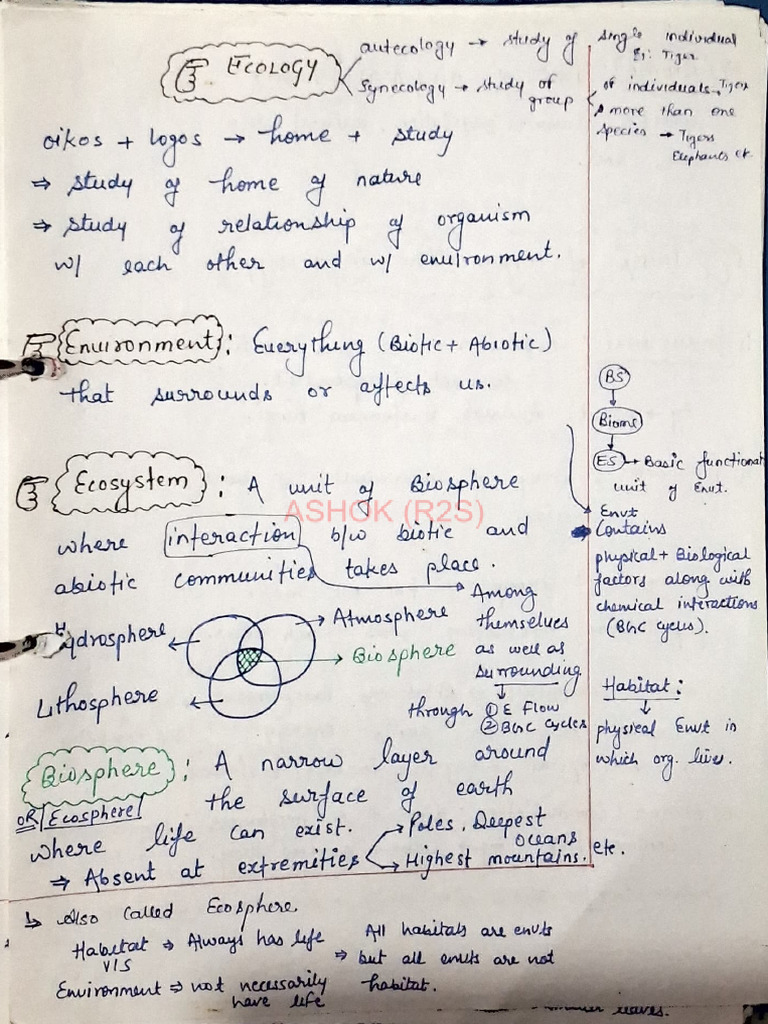 Ecology
autecology → study of single individual
Ex: Tiger
Synecology → study of group
of individuals → Tiger
more than one
species → Tigers
Elephants etc
oikos + logos → home + study
⇒ study of home of nature
⇒ study of relationship of organism
w/ each other and w/ environment.
Environment: Everything (Biotic + Abiotic)
that surrounds or affects us.
BS
Biome
ES → Basic functional
unit of Envt.
Ecosystem: A unit of Biosphere
where interaction b/w biotic and
abiotic communities takes place.
ASHOK (R2S)
Among
themselves
as well as
surrounding
through ① E flow
② BGC cycles
Envt
Contains
physical + Biological
factors along with
chemical interactions
(BGC cycles).
Hydrosphere
Atmosphere
Biosphere
Lithosphere
Habitat:
physical Envt in
which org. lives.
Biosphere: A narrow layer around
OR Ecosphere the surface of earth
where life can exist.
⇒ Absent at extremities
Poles, Deepest
oceans
Highest mountains. etc.
↳ Also called Ecosphere
Habitat ⇒ Always has life
V/S
Environment ⇒ not necessarily
have life
All habitats are envts
⇒ but all envts are not
habitat.
leaves.